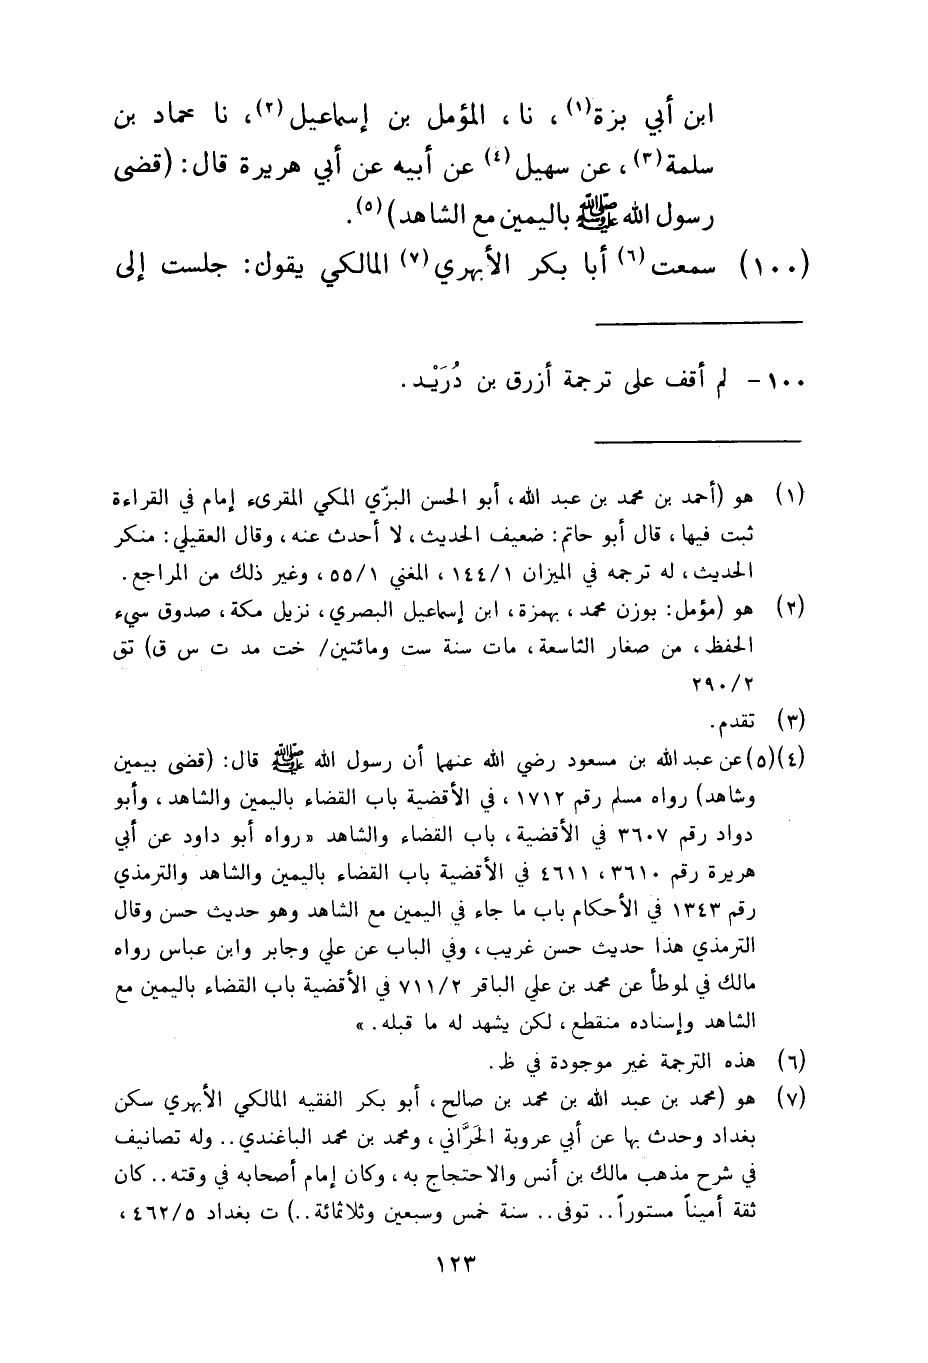 ابن أبي بزة(١)، نا، المؤمل بن إسماعيل(٢)، نا حماد بن
سلمة(٣)، عن سهيل(٤) عن أبيه عن أبي هريرة قال: (قضى
رسول الله ﷺ باليمين مع الشاهد)(٥).
(١٠٠) سمعت(٦) أبا بكر الأبهري(٧) المالكي يقول: جلست إلى
١٠٠- لم أقف على ترجمة أزرق بن دُرَيْد.
(١) هو (أحمد بن محمد بن عبد الله، أبو الحسن البزّي المكي المقرىء إمام في القراءة
ثبت فيها، قال أبو حاتم: ضعيف الحديث، لا أحدث عنه، وقال العقيلي: منكر
الحديث، له ترجمه في الميزان ١٤٤/١، المغني ٥٥/١، وغير ذلك من المراجع.
(٢) هو (مؤمل: بوزن محمد، بهمزة، ابن إسماعيل البصري، نزيل مكة، صدوق سيء
الحفظ، من صغار التاسعة، مات سنة ست ومائتين/ خت مد ت س ق) تق
٢٩٠/٢
(٣) تقدم.
(٤)(٥)عن عبدالله بن مسعود رضي الله عنهما أن رسول الله ﷺ قال: (قضى بيمين
وشاهد) رواه مسلم رقم ١٧١٢، في الأقضية باب القضاء باليمين والشاهد، وأبو
دواد رقم ٣٦٠٧ في الأقضية، باب القضاء والشاهد «رواه أبو داود عن أبي
هريرة رقم ٣٦١٠، ٤٦١١ في الأقضية باب القضاء باليمين والشاهد والترمذي
رقم ١٣٤٣ في الأحكام باب ما جاء في اليمين مع الشاهد وهو حديث حسن وقال
الترمذي هذا حديث حسن غريب، وفي الباب عن علي وجابر وابن عباس رواه
مالك في لموطأ عن محمد بن علي الباقر ٧١١/٢ في الأقضية باب القضاء باليمين مع
الشاهد وإسناده منقطع، لكن يشهد له ما قبله.»
(٦) هذه الترجمة غير موجودة في ظ.
(٧) هو (محمد بن عبد الله بن محمد بن صالح، أبو بكر الفقيه المالكي الأبهري سكن
بغداد وحدث بها عن أبي عروبة الحَرَّاني، ومحمد بن محمد الباغندي.. وله تصانيف
في شرح مذهب مالك بن أنس والاحتجاج به، وكان إمام أصحابه في وقته.. كان
ثقة أميناً مستوراً.. توفى.. سنة خمس وسبعين وثلاثمائة..) ت بغداد ٤٦٢/٥،
١٢٣